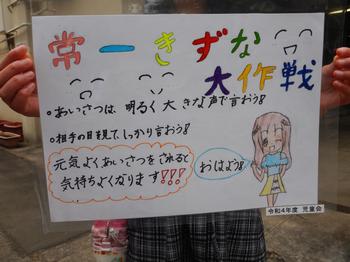 常一きずな
大作戦
。あいさつは、明るく大きな声で言おう!
。相手の目を見て、しっかり言おう!
元気よくあいさつをされると
気持ちよくなります!!!
おはよう!
令和4年度 児童会